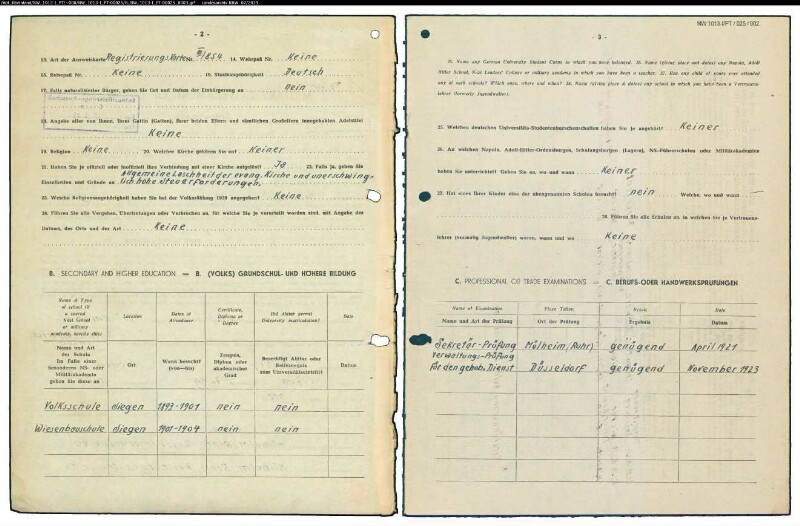 - 2 -
13. Art der Ausweiskarte Registrierungskarte 14. Wehrpaß Nr. Keine
15. Reisepaß Nr. Keine 16. Staatsangehörigkeit Deutsch
17. Falls naturalisierter Bürger, geben Sie Ort und Datum der Einbürgerung an nein
18. Angabe aller von Ihnen, Ihrer Gattin (Gatten), Ihrer beiden Eltern und sämtlichen Großeltern innegehabten Adelstitel
Keine
19. Religion Keine 20. Welcher Kirche gehören Sie an? Keiner
21. Haben Sie je offiziell oder inoffiziell Ihre Verbindung mit einer Kirche aufgelöst? Ja 22. Falls ja, geben Sie
Einzelheiten und Gründe an allgemeine Laschheit der evang. Kirche und unerschwing-
lich hohe Steuerforderungen.
23. Welche Religionsangehörigkeit haben Sie bei der Volkszählung 1939 angegeben? Keine
24. Führen Sie alle Vergehen, Übertretungen oder Verbrechen an, für welche Sie je verurteilt worden sind, mit Angabe des
Datums, des Orts und der Art Keine
B. SECONDARY AND HIGHER EDUCATION — B. (VOLKS) GRUNDSCHUL- UND HÖHERE BILDUNG
Name & Type of school Location Dates of Attendance Certificate, Diploma or Degree Did Abitur permit University matriculation? Date
Name und Art der Schule Im Falle einer besonderen NS- oder Militärakademie geben Sie diese an Ort Wann besucht? (von—bis) Zeugnis, Diplom oder akademischer Grad Berechtigt Abitur oder Reifezeugnis zum Universitätseintritt? Datum
Volksschule 1893-1901 nein nein
Wiesenbauschule 1901-1904 nein nein
NW 1013-I/PT / 025 / 002
- 3 -
25. Name any German University Student Corps to which you have belonged. 26. Name (giving place and dates) any Napola, Adolf
Hitler School, Nazi Leaders' College or military academy in which you have been a teacher. 27. Has any child of yours ever attended
any of such schools? Which ones, where and when? 28. Name (giving place & dates) any school in which you have been a Vertrauens-
lehrer (formerly Jugendwalter).
25. Welchen deutschen Universitäts-Studentenburschenschaften haben Sie je angehört? Keiner
26. An welchen Napola, Adolf-Hitler-, NS-Führerschulen oder Militärakademien
haben Sie unterrichtet? Geben Sie an, wo und wann Keiner
27. Hat eines Ihrer Kinder eine der obengenannten Schulen besucht? nein Welche, wo und wann
28. Führen Sie alle Schulen an, in welchen Sie je Vertrauens-
lehrer (vormalig Jugendwalter) waren, wann und wo Keine
C. PROFESSIONAL OR TRADE EXAMINATIONS — C. BERUFS- ODER HANDWERKSPRÜFUNGEN
Name of Examination Place Taken Result Date
Name und Art der Prüfung Ort der Prüfung Ergebnis Datum
Sekretär-Prüfung Mülheim (Ruhr) genügend April 1921
Verwaltungs-Prüfung
für den gehob. Dienst Düsseldorf genügend November 1923